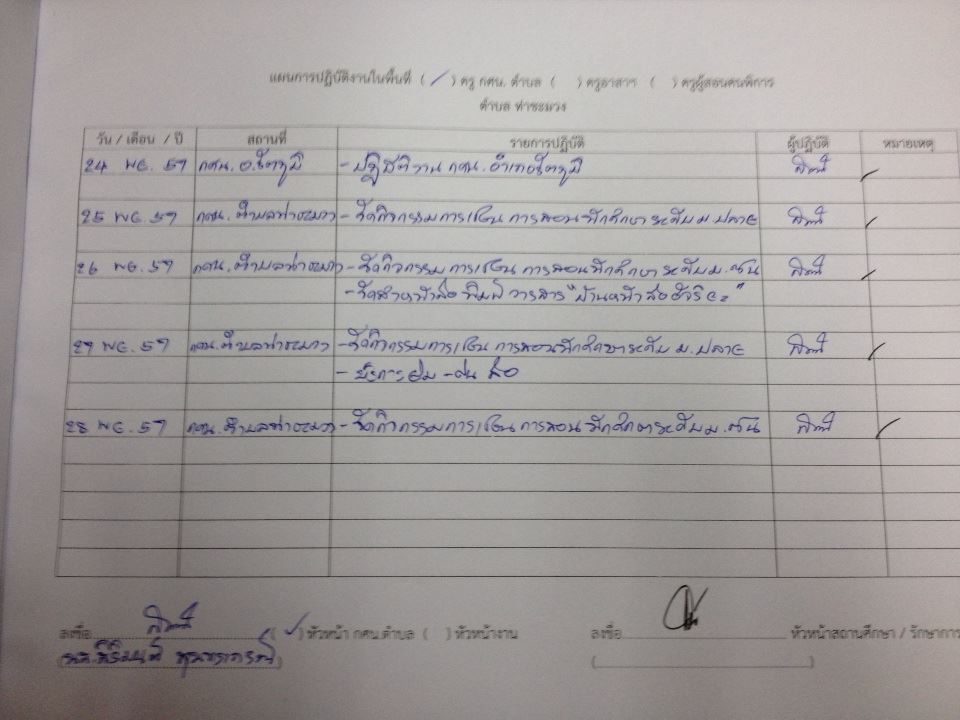 แผนการปฏิบัติงานในพื้นที่ ( / ) ครู กศน. ตำบล ( ) ครูอาสาฯ ( ) ครูผู้สอนคนพิการ
ตำบล ท่าชะมวง
วัน / เดือน / ปี สถานที่ รายการปฏิบัติ ผู้ปฏิบัติ หมายเหตุ
24 พย. 57 กศน.อ.รัตภูมิ - ปฏิบัติงาน กศน.อำเภอรัตภูมิ /
25 พย. 57 กศน.ตำบลท่าชะมวง - จัดกิจกรรมการเรียน การสอนนักศึกษาระดับ ม.ปลาย /
26 พย. 57 กศน.ตำบลท่าชะมวง - จัดกิจกรรมการเรียน การสอนนักศึกษาระดับ ม.ต้น /
- จัดทำหนังสือพิมพ์ วารสาร "บ้านหนังสืออัจฉริยะ"
27 พย. 57 กศน.ตำบลท่าชะมวง - จัดกิจกรรมการเรียน การสอนนักศึกษาระดับ ม.ปลาย /
- บริการยืม - คืน สื่อ
28 พย. 57 กศน.ตำบลท่าชะมวง - จัดกิจกรรมการเรียน การสอนนักศึกษาระดับ ม.ต้น /
ลงชื่อ ( / ) หัวหน้า กศน.ตำบล ( ) หัวหน้างาน ลงชื่อ หัวหน้าสถานศึกษา / รักษาการ